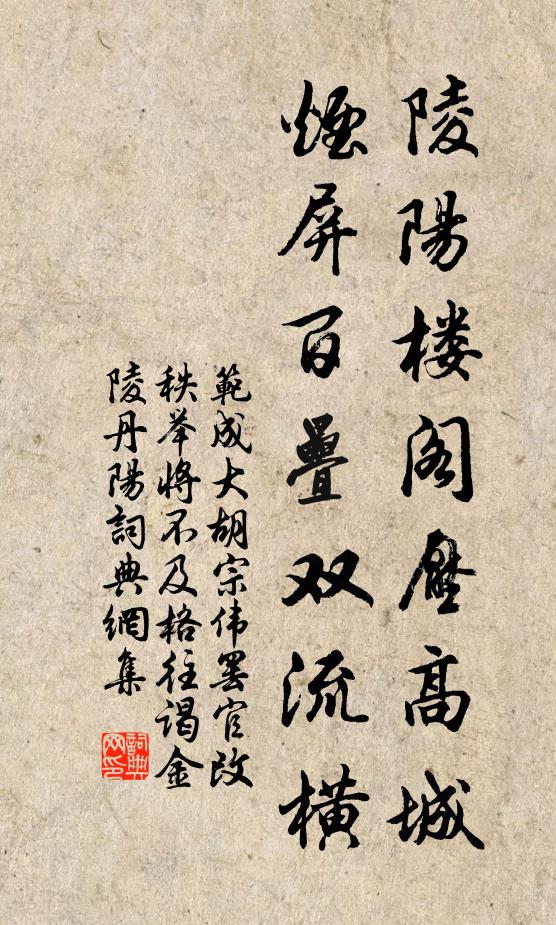 陵陽楼阁壓高城
煙屏百疊双流横
範成大胡宗伟罢官改
秩举将不及格往谒金
陵丹陽詞典網集
詞典
网印